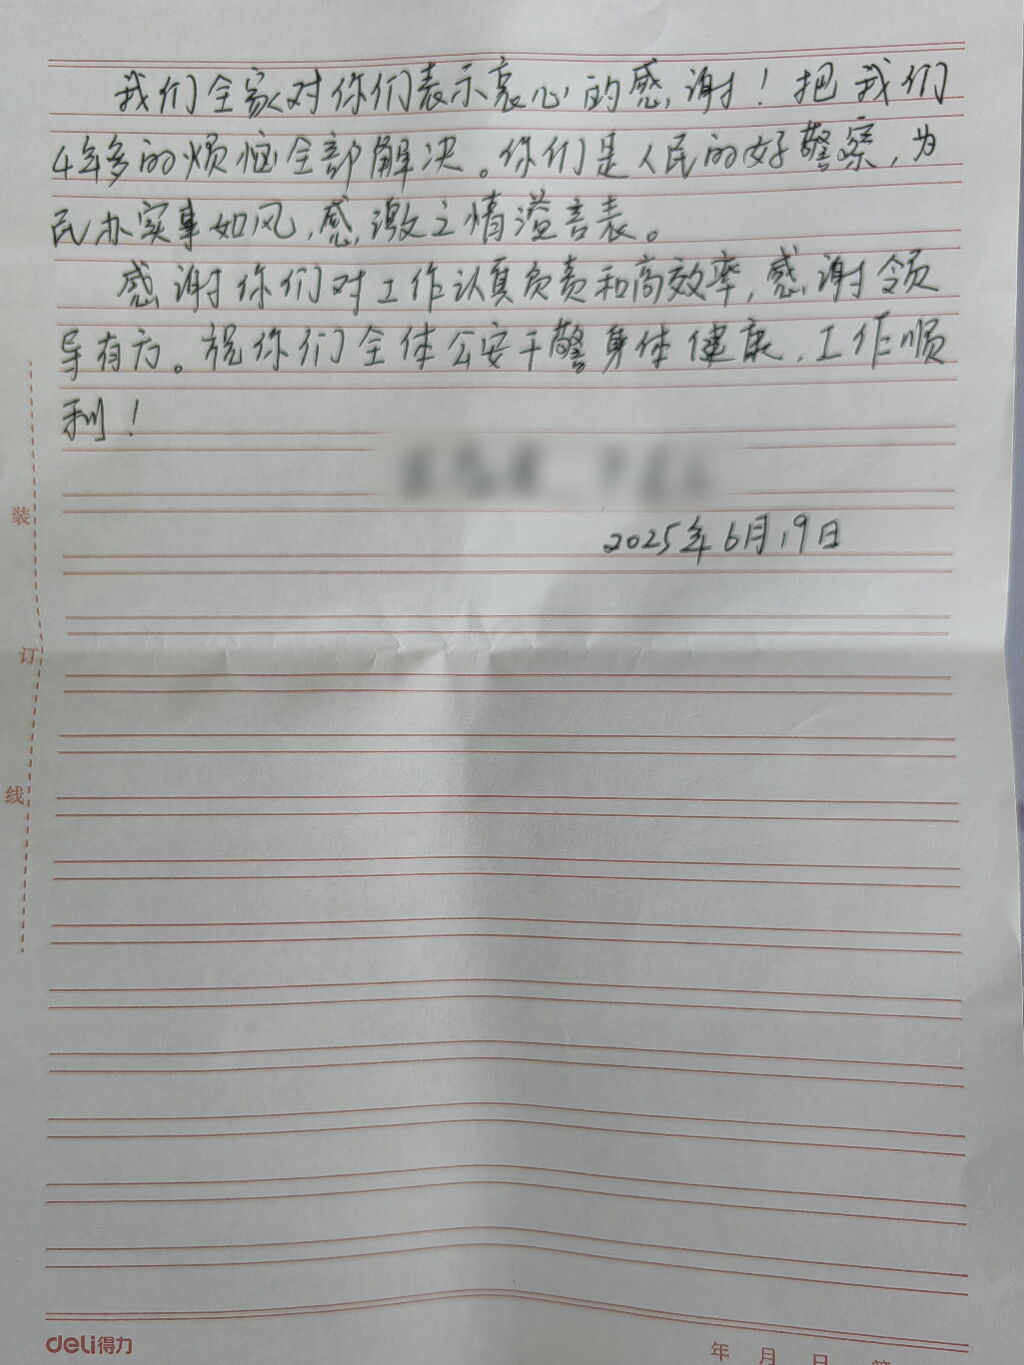 我们全家对你们表示衷心的感谢！把我们
4年多的烦恼全部解决。你们是人民的好警察，为
民办实事如风，感激之情溢言表。
感谢你们对工作认真负责和高效率，感谢领
导有方。祝你们全体公安干警身体健康，工作顺
利！
2025年6月19日
装
订
线
deli得力
年 月 日 第